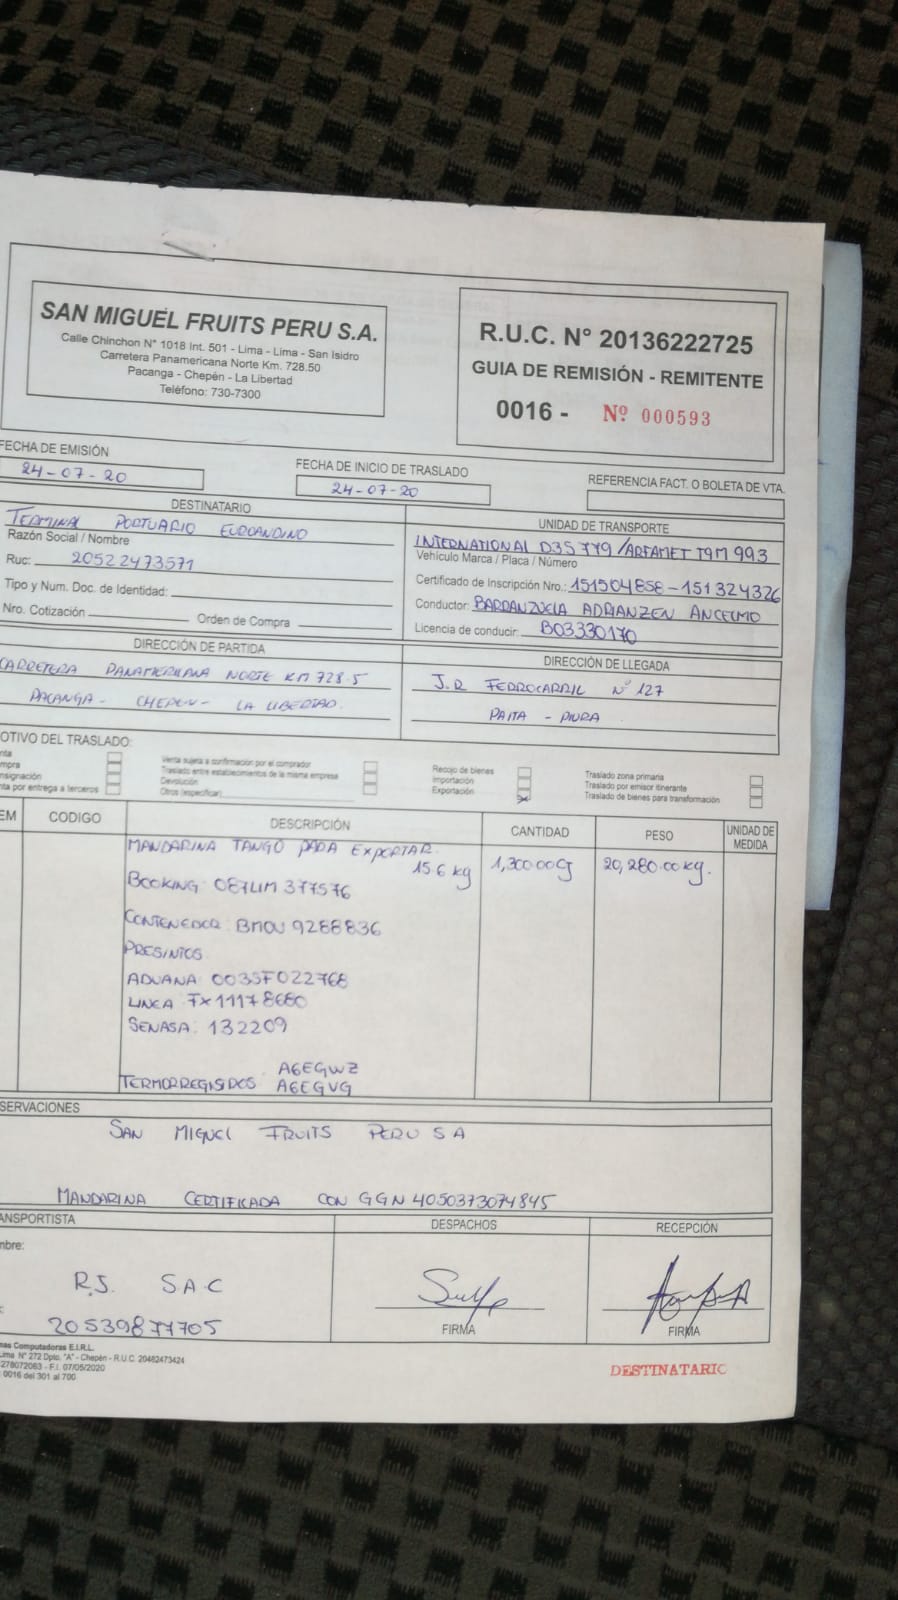 SAN MIGUEL FRUITS PERU S.A.
Calle Chinchon N° 1018 Int. 501 - Lima - Lima - San Isidro
Carretera Panamericana Norte Km. 728.50
Pacanga - Chepén - La Libertad
Teléfono: 730-7300
R.U.C. N° 20136222725
GUIA DE REMISIÓN - REMITENTE
0016 - Nº 000593
FECHA DE EMISIÓN
24-07-20
FECHA DE INICIO DE TRASLADO
24-07-20
REFERENCIA FACT. O BOLETA DE VTA.
DESTINATARIO
TERMINAL PORTUARIO EUROANDINO
Razón Social / Nombre
Ruc: 20522473571
Tipo y Num. Doc. de Identidad:
Nro. Cotización Orden de Compra
UNIDAD DE TRANSPORTE
INTERNATIONAL D3S 779 /ARFAMET T9M 993
Vehículo Marca / Placa / Número
Certificado de Inscripción Nro.: 151504858-151324326
Conductor: BARRANZUELA ADRIANZEN ANCELMO
Licencia de conducir: B03330170
DIRECCIÓN DE PARTIDA
CARRETERA PANAMERICANA NORTE KM 728.5
PACANGA - CHEPEN - LA LIBERTAD.
DIRECCIÓN DE LLEGADA
J.R FERROCARRIL N° 127
PAITA - PIURA
OTIVO DEL TRASLADO:
nta
mpra
nsignación
nta por entrega a terceros
Venta sujeta a confirmación por el comprador
Traslado entre establecimientos de la misma empresa
Devolución
Otros (especificar)
Recojo de bienes
Importación
Exportación
Traslado zona primaria
Traslado por emisor itinerante
Traslado de bienes para transformación
EM CODIGO DESCRIPCIÓN CANTIDAD PESO UNIDAD DE MEDIDA
MANDARINA TANGO PARA EXPORTAR.
15.6 kg 1,300.00 20,280.00 kg.
BOOKING: 087LIM 377576
CONTENEDOR: BMOU 9288836
PRESINTOS
ADUANA: 003SF022768
LINEA FX11178680
SENASA: 132209
A6EGWZ
TERMORREGISDOS A6EGVG
SERVACIONES
SAN MIGUEL FRUITS PERU S A
MANDARINA CERTIFICADA CON GGN 4050373074845
ANSPORTISTA
mbre:
R.J. S.A.C
20539877705
DESPACHOS
FIRMA
RECEPCIÓN
FIRMA
mas Computadoras E.I.R.L.
Lima N° 272 Dpto. "A" - Chepén - R.U.C. 20482473424
278072063 - F.I. 07/05/2020
0016 del 301 al 700
DESTINATARIO